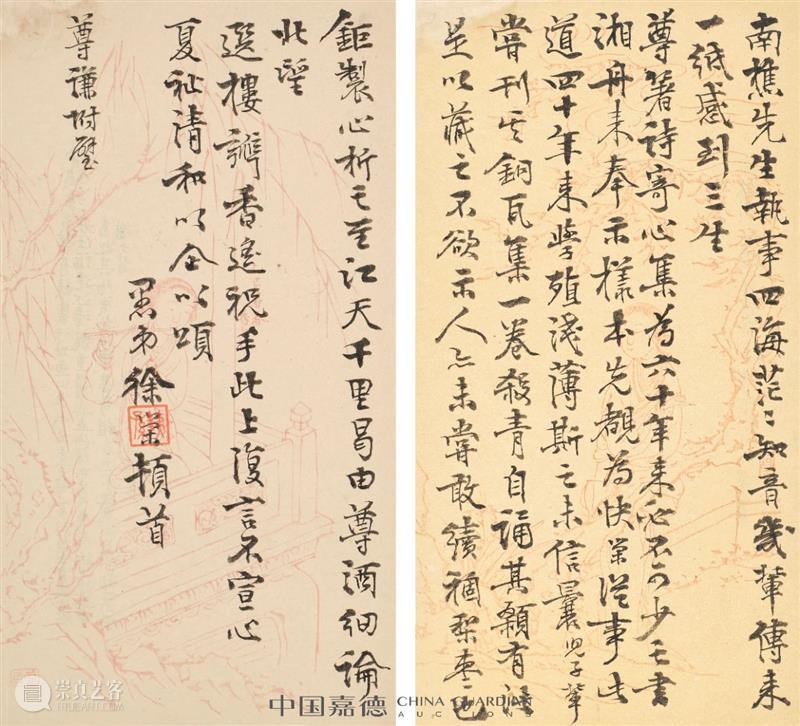 南樵先生執事四海茫〻知音幾輩傳来
一紙感到三生
尊著詩寄心集為六十年来必不可少之書
湘舟来奉示樣本先覩為快榮從事此
道四十年来學殖淺薄斯之未信曩兒子輩
嘗刊其銅瓦集一卷殺青自誦其纇有
是以藏之不欲示人亦未嘗敢續禍棃棗也
鉅製心折之至江天千里曷由尊酒細論
北望
選樓瓣香遙祝手此上復言不宣心
夏祉清和以企以頌
愚弟徐榮頓首
尊謙附璧
崇真艺客
中国嘉德 CHINA GUARDIAN
AUCTIONS